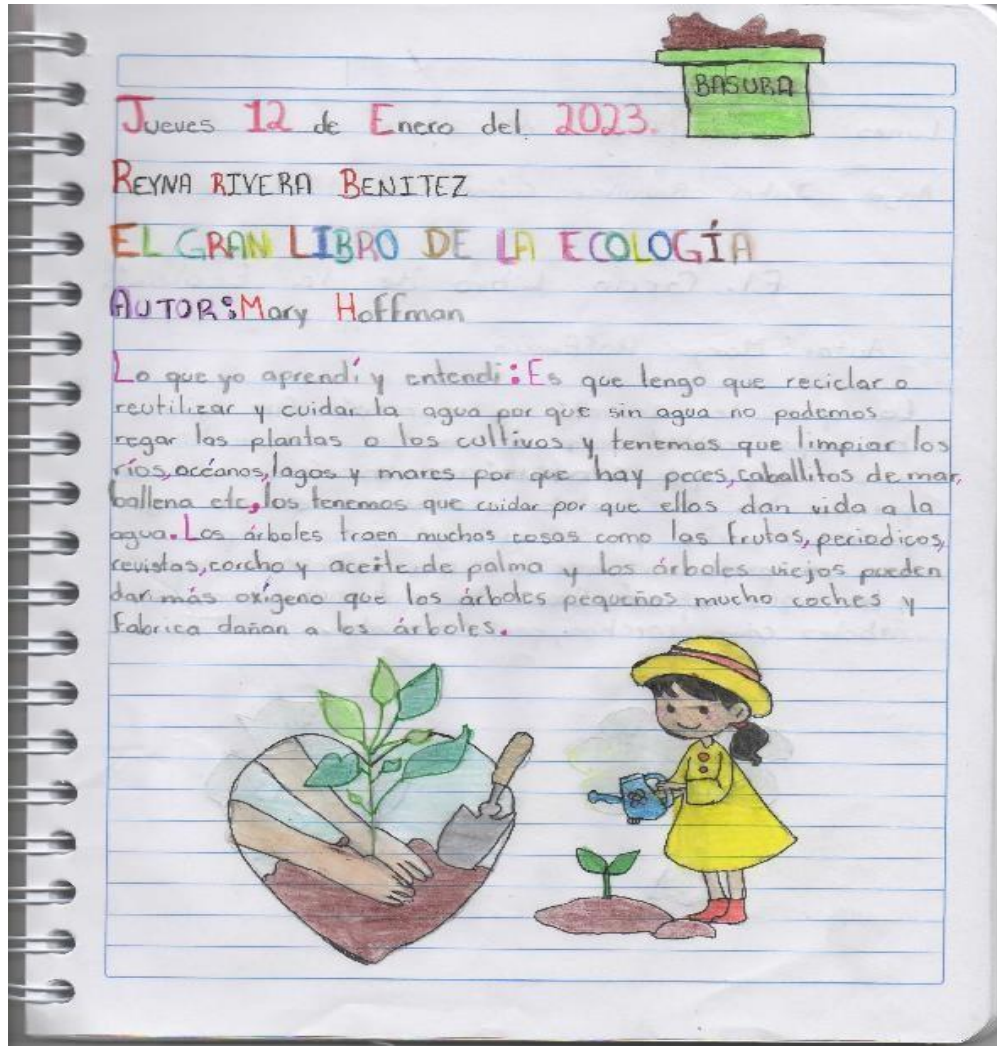 BASURA
Jueves 12 de Enero del 2023.
REYNA RIVERA BENITEZ
EL GRAN LIBRO DE LA ECOLOGÍA
AUTOR: Mary Hoffman
Lo que yo aprendí y entendi: Es que tengo que reciclar o
reutilizar y cuidar la agua por que sin agua no podemos
regar las plantas o los cultivos y tenemos que limpiar los
ríos, océanos, lagos y mares por que hay peces, caballitos de mar,
ballena etc, los tenemos que cuidar por que ellos dan vida a la
agua. Los árboles traen muchas cosas como las frutas, periodicos,
revistas, corcho y aceite de palma y los árboles viejos pueden
dar más oxígeno que los árboles pequeños mucho coches y
fabrica dañan a los árboles.